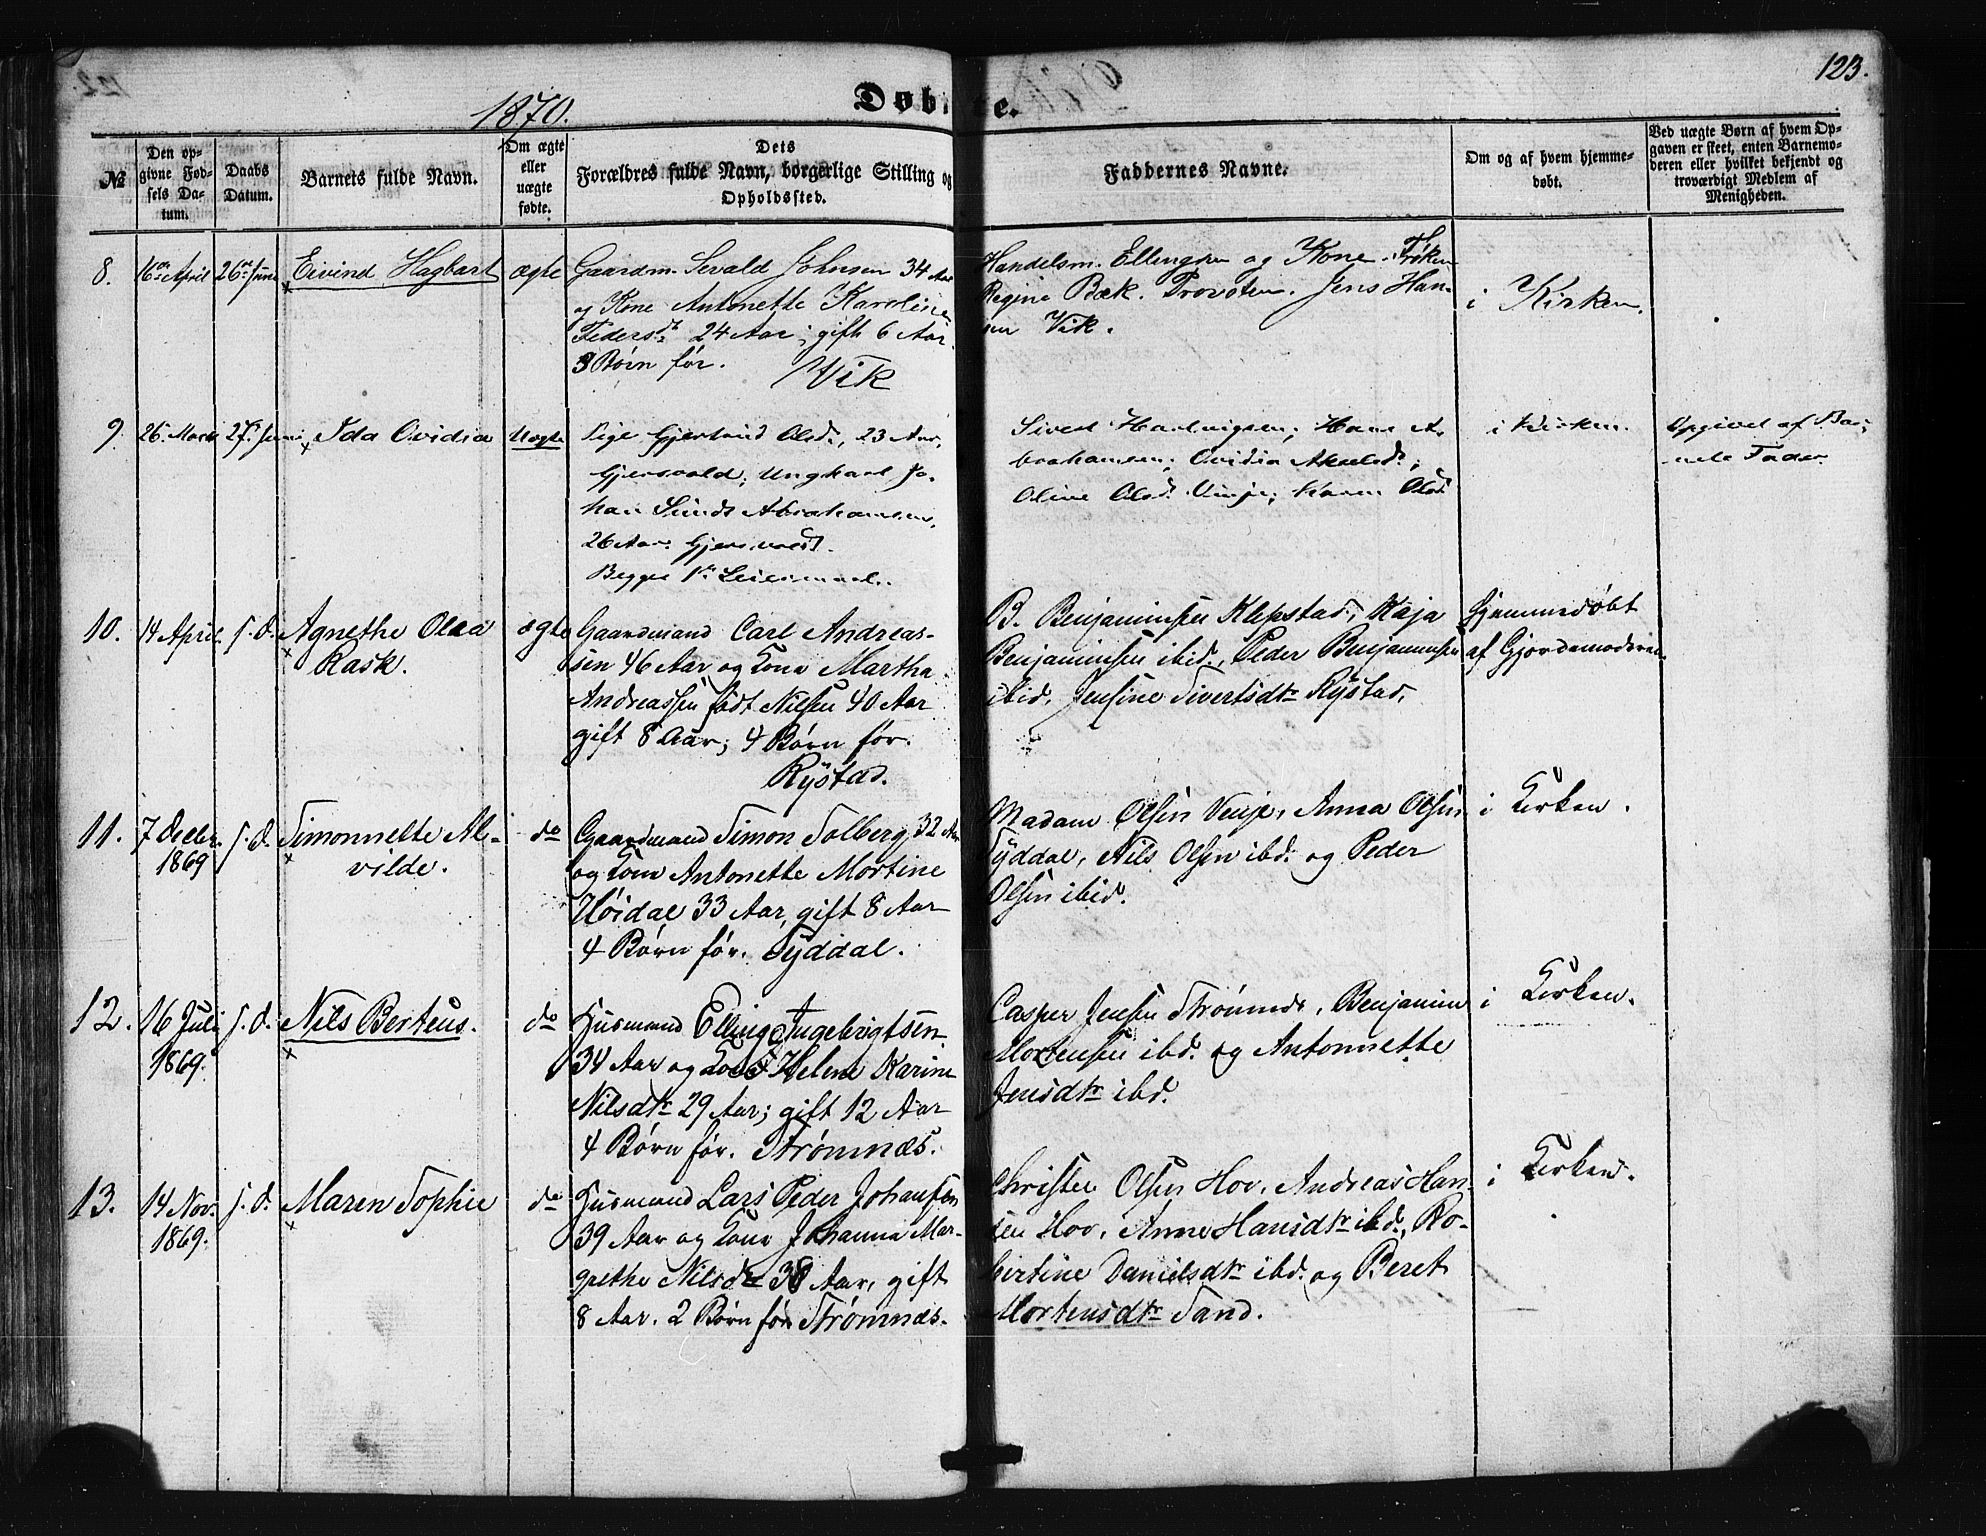 123.
1870.
Døbte.
№
Den op-
givne Fød-
sels Da-
tum.
Daabs
Datum.
Barnets fulde Navn.
Om ægte
eller
uægte
fødte.
Dets
Forældres fulde Navn, borgerlige Stilling og
Opholdssted.
Faddernes Navne.
Om og af hvem hjemme-
døbt.
Ved uægte Børn af hvem Op-
gaven er skeet, enten Barnemo-
deren eller hvilket bekjendt og
troværdigt Medlem af
Menigheden.
8.
16de April
26de Juni
Eivind Hagbart
ægte
Gaardm. Sevald Johnsen 34 Aar
og Kone Antonette Karoline
Pedersdtr 24 Aar; gift 6 Aar
3 Børn før.
Vik
Handelsm. Ellingsen og Kone. Frøken
Regine Bæk. Jens Han-
sen Vik.
i Kirken.
9.
26. Marts
27. Juni
Ida Ovidia
Uægte
Pige Gjertrud Olsd., 23 Aar,
Gjersvold; Ungkarl Jo-
han Sunds Abrahamsen,
26 Aar. Gjersvold.
Begges 1ste Leiermaal.
Sivert Hartvigsen; Hans A-
brahamsen; Ovidia Akselsd.;
Oline Olsd. Vinje; Karen Olsd.
i Kirken.
Opgivet af Bar-
nets Fader.
10.
14 April
s. d.
Agnethe Olea
Rask.
ægte
Gaardmand Carl Andreas-
sen 46 Aar og Kone Martha
Andreassen født Nilsen 40 Aar
gift 8 Aar; 4 Børn før.
Rystad.
B. Benjaminsen Klepstad, Kaja
Benjaminsen ibid., Peder Benjaminsen
ibid. Jensine Sivertsdtr Rystad.
Hjemmedøbt
af Gjordemoderen
11.
7 Decbr.
1869
s. d.
Simonnette Al-
vilde.
do
Gaardmand Simon Solberg 32 Aar
og Kone Antonette Mortine
Høidal 33 Aar, gift 8 Aar
4 Børn før. Syddal.
Madam Olsen Venje, Anna Olsen
Syddal, Nils Olsen ibd. og Peder
Olsen ibid.
i Kirken.
12.
16 Juli
1869.
s. d.
Nils Berteus.
do
Husmand Elling Ingebrigtsen
34 Aar og Kone Helene Karine
Nilsdtr 29 Aar; gift 12 Aar
4 Børn før. Strømnæs.
Casper Jensen Strømnæs, Benjamin
Mortensen ibd. og Antonnette
Jensdtr ibd.
i Kirken.
13.
14 Nov.
1869.
s. d.
Maren Sophie
do
Husmand Lars Peder Johansen
39 Aar og Kone Johanna Mar-
grethe Nilsdtr 38 Aar, gift
8 Aar. 2 Børn før Strømnæs.
Christen Olsen Hov, Andreas Han-
sen Hov, Anne Hansdtr ibd., Ro-
bertine Danielsdtr ibd. og Beret
Mortensdtr Sand.
i Kirken.